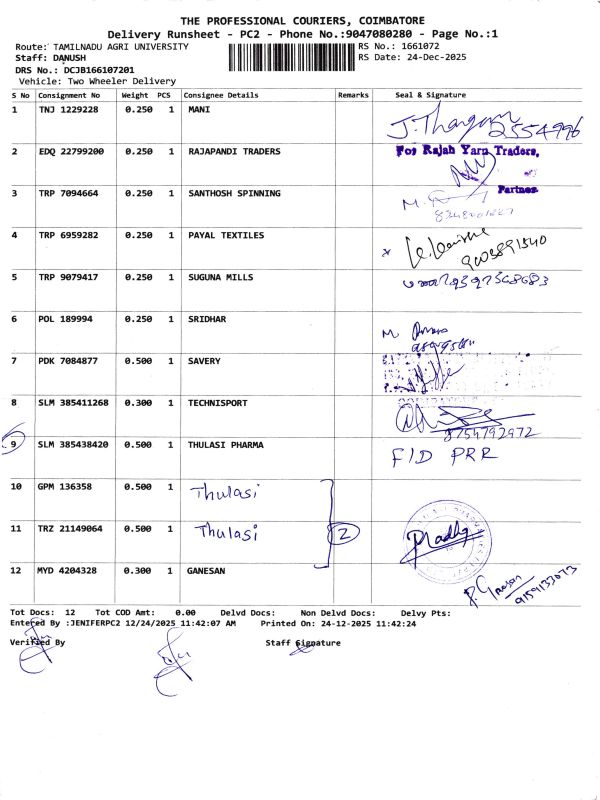 THE PROFESSIONAL COURIERS, COIMBATORE
Delivery Runsheet - PC2 - Phone No.:9047080280 - Page No.:1
Route: TAMILNADU AGRI UNIVERSITY
RS No.: 1661072
Staff: DANUSH
RS Date: 24-Dec-2025
DRS No.: DCJB166107201
Vehicle: Two Wheeler Delivery
S No Consignment No Weight PCS Consignee Details Remarks Seal & Signature
1 TNJ 1229228 0.250 1 MANI
J. Thangam 2554996
2 EDQ 22799200 0.250 1 RAJAPANDI TRADERS
For Rajah Yarn Traders,
Partner
3 TRP 7094664 0.250 1 SANTHOSH SPINNING
4 TRP 6959282 0.250 1 PAYAL TEXTILES
5 TRP 9079417 0.250 1 SUGUNA MILLS
6 POL 189994 0.250 1 SRIDHAR
7 PDK 7084877 0.500 1 SAVERY
8 SLM 385411268 0.300 1 TECHNISPORT
8754792972
9 SLM 385438420 0.500 1 THULASI PHARMA
F/D PRR
10 GPM 136358 0.500 1 Thulasi
11 TRZ 21149064 0.500 1 Thulasi 2
Pradhy
12 MYD 4204328 0.300 1 GANESAN
9159133073
Tot Docs: 12 Tot COD Amt: 0.00 Delvd Docs: Non Delvd Docs: Delvy Pts:
Entered By :JENIFERPC2 12/24/2025 11:42:07 AM Printed On: 24-12-2025 11:42:24
Verified By Staff Signature